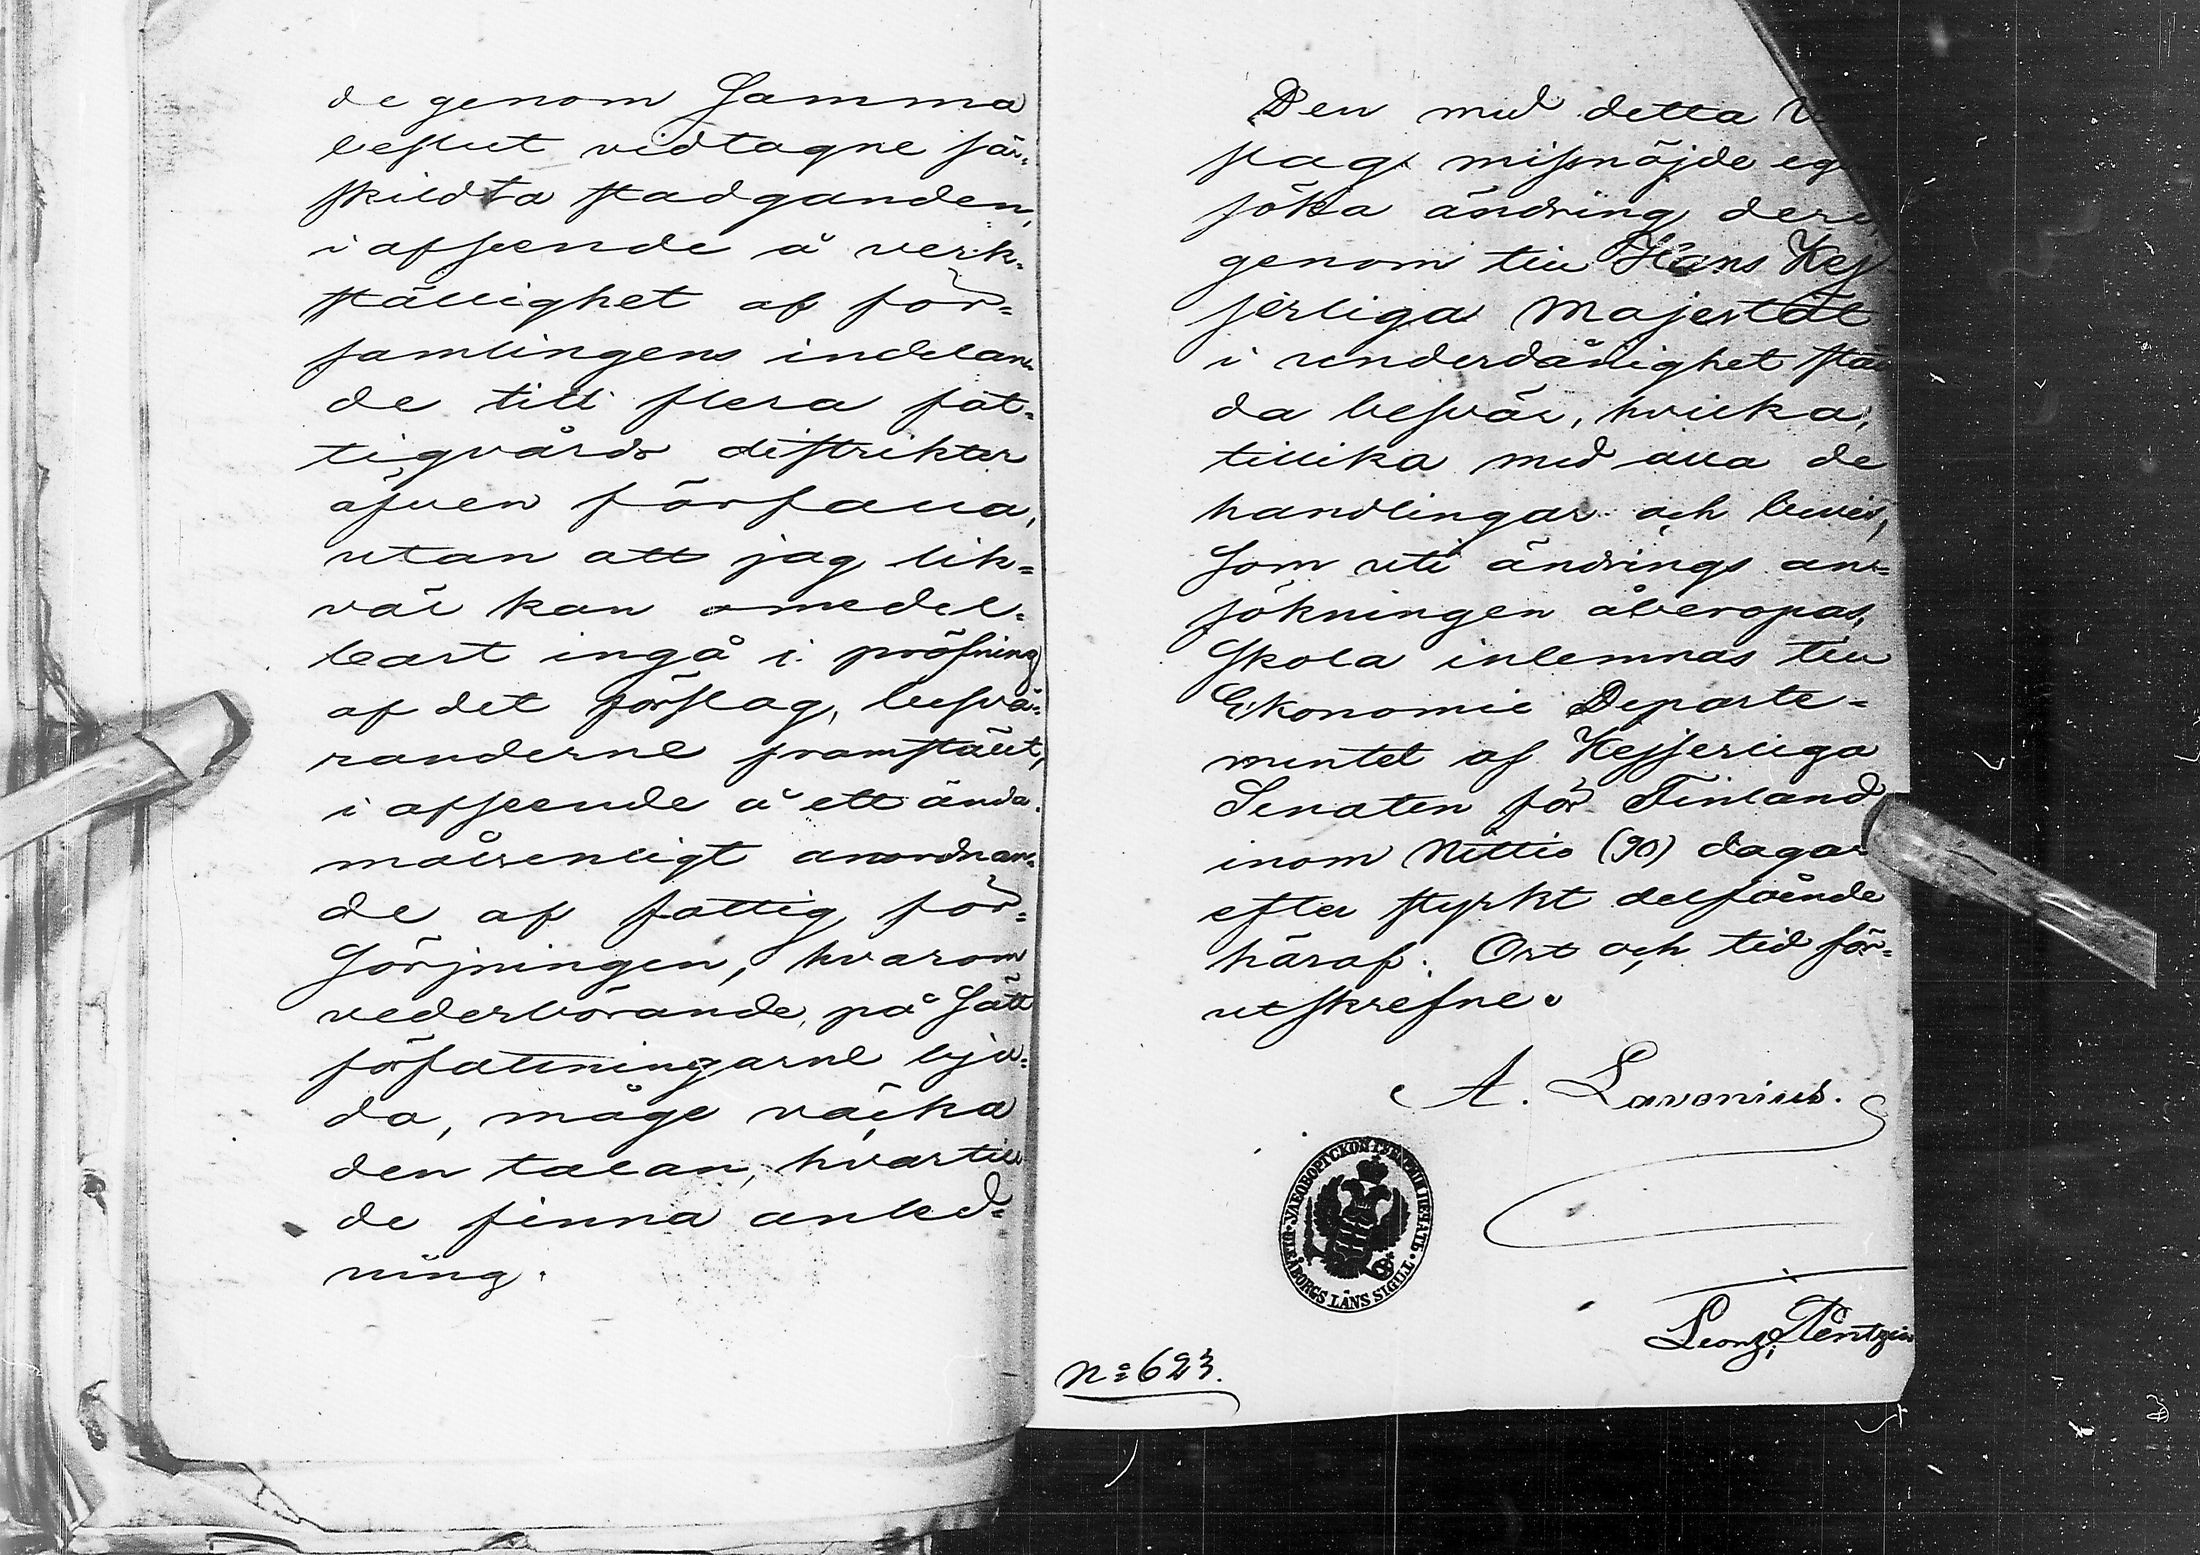 de genom samma
beslut vidtagne sär-
skildta stadganden,
i afseende å verk-
ställighet af för-
samlingens indelan-
de till flera fat-
tigvårds distrikter
äfven förfalla,
utan att jag lik-
väl kan omedel-
bart ingå i pröfning
af det förslag, besvä-
randerne framstält,
i afseende å ett ända-
målsenligt anordnan-
de af fattig för-
sörjningen, hvarom
vederbörande, på sätt
författningarne bju-
da, måge väcka
den talan, hvartill
de finna anled-
ning.
Den med detta
slag missnöjde eg
söka ändring der-
genom till Hans Kej-
serliga Majestät
i underdånighet stäl
da besvär, hvilka,
tillika med alla de
handlingar och bevis,
som uti ändrings an-
sökningen åberopas,
skola inlemnas till
Ekonomie Departe-
mentet af Kejserliga
Senaten för Finland
inom Nittio (90) dagar
efter styrkt delfående
häraf. Ort och tid för-
utskrefne.
A. Lavonius.
ÅBO-BJÖRNEBORGS LÄNS SIGILL
No 623.